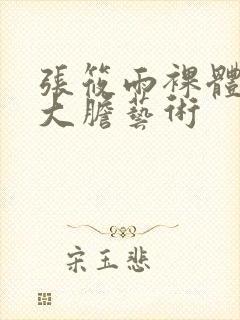 張筱雨裸體
大膽藝術
宋玉悲